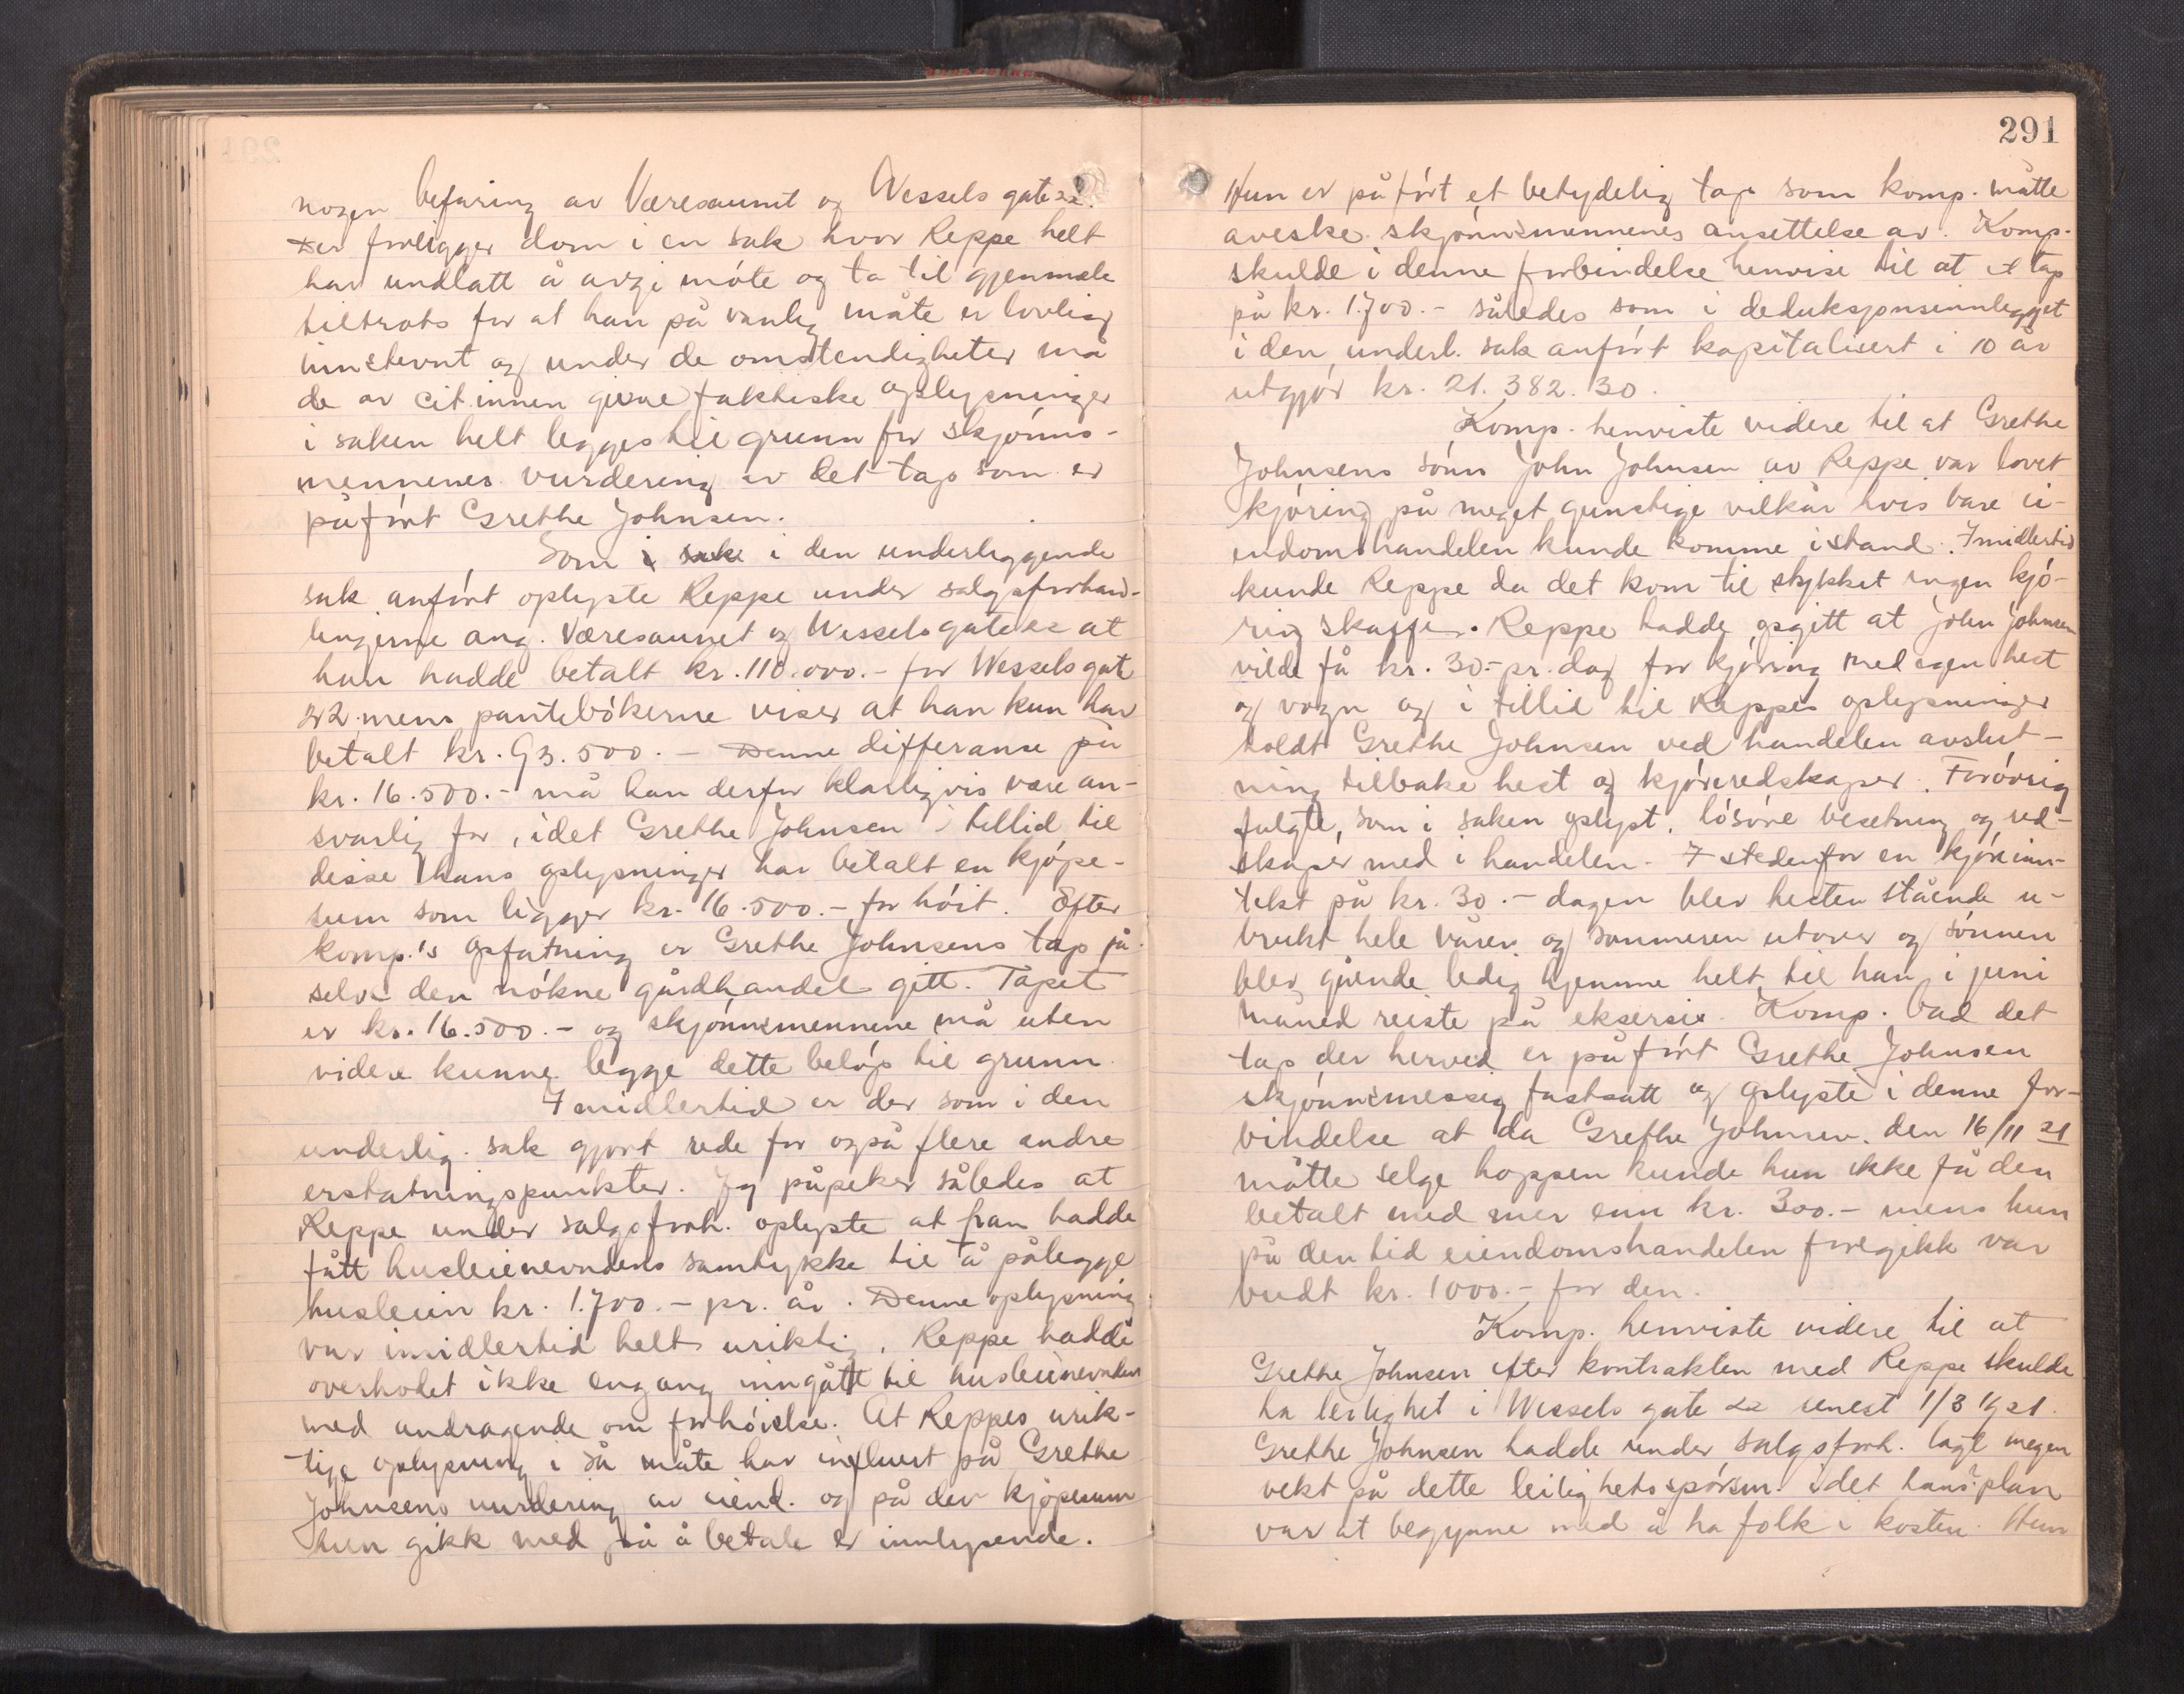 nogen befaring av Væresaunet og Wessels gate 22.
Der foreligger dom i en sak hvor Reppe helt
har undlatt å avgi møte og ta til gjenmæle
tiltrots for at han på vanlig måte er lovlig
innstevnt og under de omstendigheter må
de av cit.innen givne faktiske oplysninger
i saken helt legges til grunn for skjønns-
mennenes vurdering av det tap som er
påført Grethe Johnsen.
Som i sak i den underliggende
sak anført oplyste Reppe under salgsforhand-
lingerne ang. Væresaunet og Wessels gate 22 at
han hadde betalt kr. 110.000.- for Wessels gate
22 mens pantebøkerne viser at han kun har
betalt kr. 93.500.- Denne differanse på
kr. 16.500.- må han derfor klarligvis være an-
svarlig for, idet Grethe Johnsen i tillid til
disse hans oplysninger har betalt en kjøpe-
sum som ligger kr. 16.500.- for høit. Efter
komp.'s opfatning er Grethe Johnsens tap på
selve den nøkne gårdhandel gitt. Tapet
er kr. 16.500.- og skjønnsmennene må uten
videre kunne legge dette beløp til grunn.
Imidlertid er der som i den
underlig. sak gjort rede for også flere andre
erstatningspunkter. Jeg påpeker således at
Reppe under salgsforh. oplyste at han hadde
fått husleienevndens samtykke til å pålegge
husleien kr. 1.700.- pr. år. Denne oplysning
var imidlertid helt uriktig. Reppe hadde
overhodet ikke engang inngått til husleienevnden
med andragende om forhøielse. At Reppes urik-
tige oplysning i så måte har influert på Grethe
Johnsens vurdering av eiend. og på den kjøpesum
hun gikk med på å betale er innlysende.
291
Hun er påført et betydelig tap som komp. måtte
aveske skjønnsmennenes ansettelse av. Komp.
skulde i denne forbindelse henvise til at et tap
på kr. 1.700.- således som i deduksjonsinnlegget
i den underl. sak anført kapitalisert i 10 år
utgjør kr. 21.382.30.
Komp. henviste videre til at Grethe
Johnsens sønn John Johnsen av Reppe var lovet
kjøring på meget gunstige vilkår hvis bare ei-
endomshandelen kunde komme istand. Imidlertid
kunde Reppe da det kom til stykket ingen kjø-
ring skaffe. Reppe hadde opgitt at John Johnsen
vilde få kr. 30.- pr. dag for kjøring med egen hest
og vogn og i tillid til Reppes oplysninger
holdt Grethe Johnsen ved handelen avslut-
ning tilbake hest og kjøreredskaper. Forøvrig
fulgte, som i saken oplyst, løsøre besetning og red-
skaper med i handelen. I stedenfor en kjøreinn-
tekt på kr. 30.- dagen blev hesten stående u-
brukt hele våren og sommeren utover og sønnen
blev gående ledig hjemme helt til han i juni
måned reiste på eksersis. Komp. bad det
tap der herved er påført Grethe Johnsen
skjønnsmessig fastsatt og oplyste i denne for-
bindelse at da Grethe Johnsen den 16/11 21
måtte selge hoppen kunde hun ikke få den
betalt med mer enn kr. 300.- mens hun
på den tid eiendomshandelen foregikk var
budt kr. 1000.- for den.
Komp. henviste videre til at
Grethe Johnsen efter kontrakten med Reppe skulde
ha leilighet i Wessels gate 22 senest 1/8 1921.
Grethe Johnsen hadde under salgsforh. lagt megen
vekt på dette leilighetsspørsm. idet hans plan
var at begynne med å ha folk i kosten. Hun